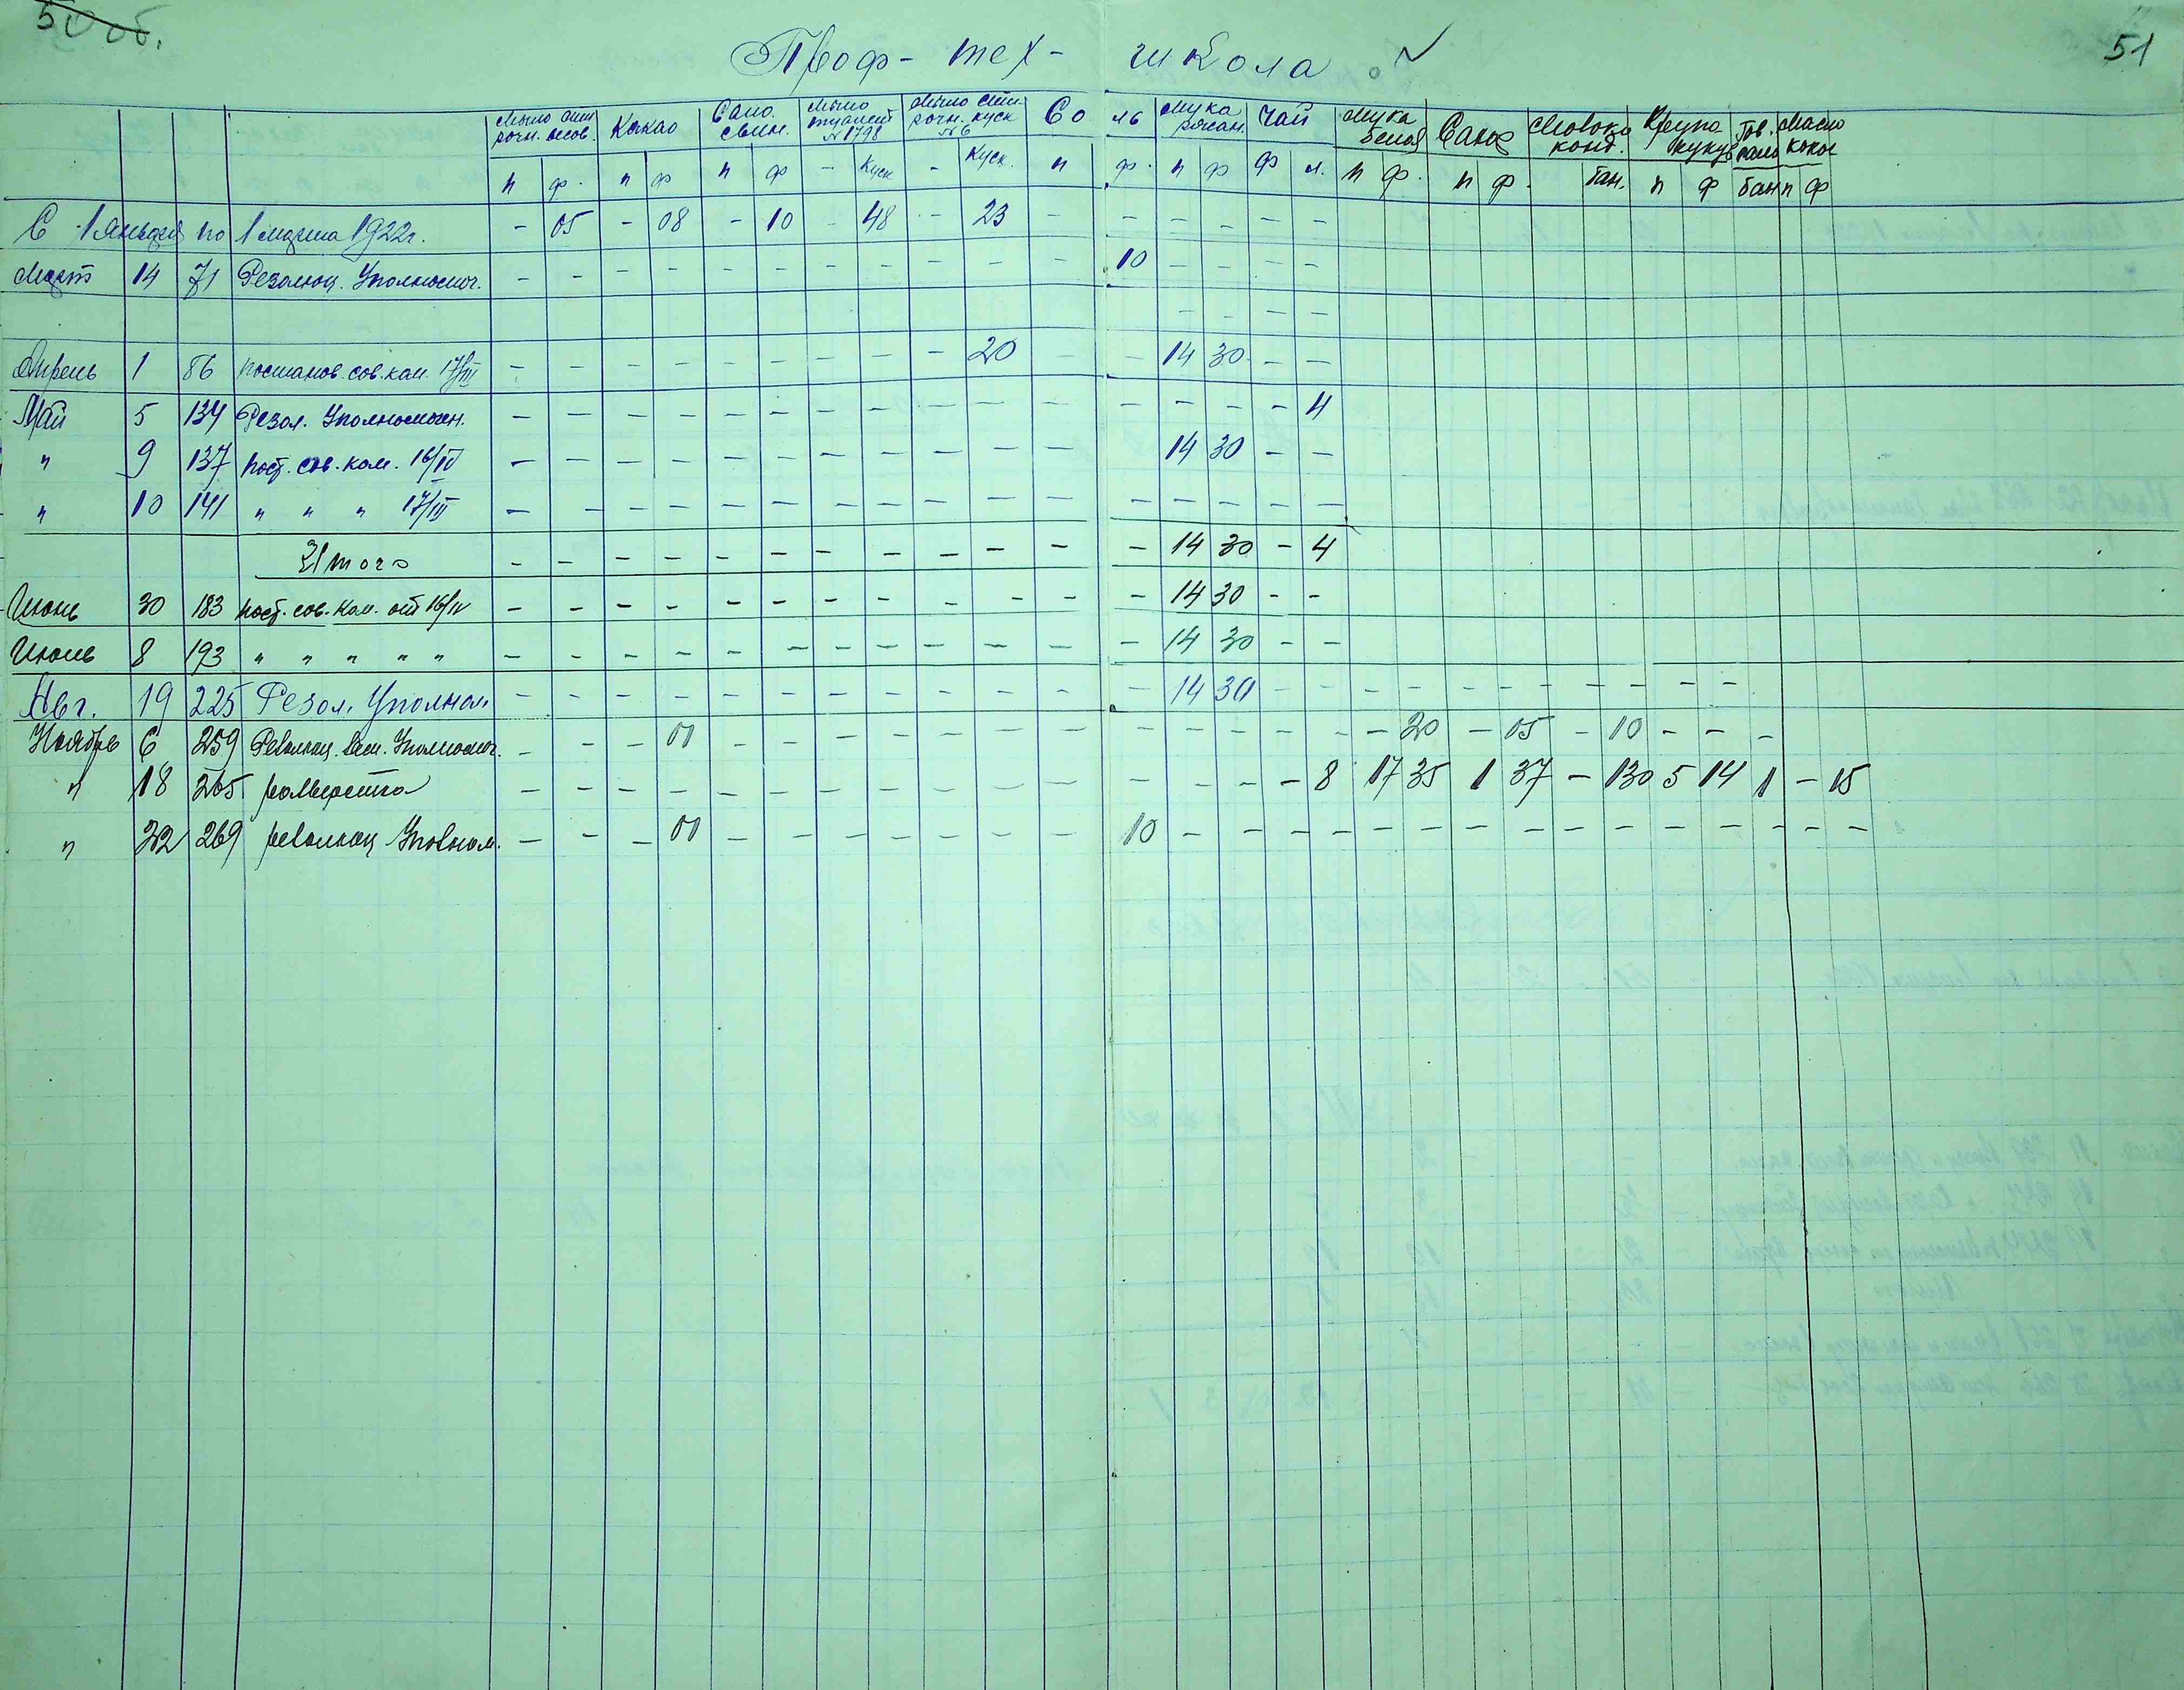 50 об.
51
Проф- тех- школа.
Мыло сти- рочн. весов. Какао Сало свин. Мыло туалет № 1798 Мыло сти- рочн. куск № 6 Соль Мука ржан. Чай Мука белая Сало Молоко конд. Крупа кукур. Тов. сало Масло кокос
п ф. п ф п ф - Куск - Куск. п ф. п ф ф л. п ф. п ф. бан. п ф бан п ф
С 1 Января по 1 марта 1922г. - 05 - 08 - 10 - 48 - 23 - - - - - -
Март 14 71 Резолюц. Уполномоч. - - - - - - - - - - - 10 - - - -
- - - -
Апрель 1 86 Постанов. сов. кам. 17/III - - - - - - - - - 20 - - 14 30 - -
Май 5 134 Резол. Уполномочен. - - - - - - - - - - - - - - - 4
" 9 137 пост. сов. кам. 16/IV - - - - - - - - - - - 14 30 - -
" 10 141 " " " 17/III - - - - - - - - - - - - - - - -
Итого - - - - - - - - - - - - 14 30 - 4
Июнь 30 183 пост. сов. кам. от 16/IV - - - - - - - - - - - - 14 30 - -
Июль 8 193 " " " " " - - - - - - - - - - - - 14 30 - -
Авг. 19 225 Резол. Уполном. - - - - - - - - - - - - 14 30 - - - - - - - - - - -
Ноябрь 6 259 Резолюц. Уполномоч. - - - 01 - - - - - - - - - - - - - 20 - 05 - 10 - - -
" 18 265 разверстка - - - - - - - - - - - - - - - 8 17 35 1 37 - 130 5 14 1 - 15
" 22 269 резолюц Уполном. - - - 01 - - - - - - - 10 - - - - - - - - - - - - - - -